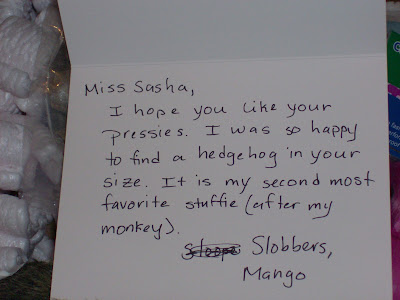 Miss Sasha,
I hope you like your
pressies. I was so happy
to find a hedgehog in your
size. It is my second most
favorite stuffie (after my
monkey).
Slobbers,
Mango